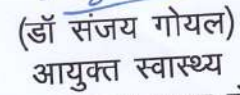 (डॉ संजय गोयल)
आयुक्त स्वास्थ्य